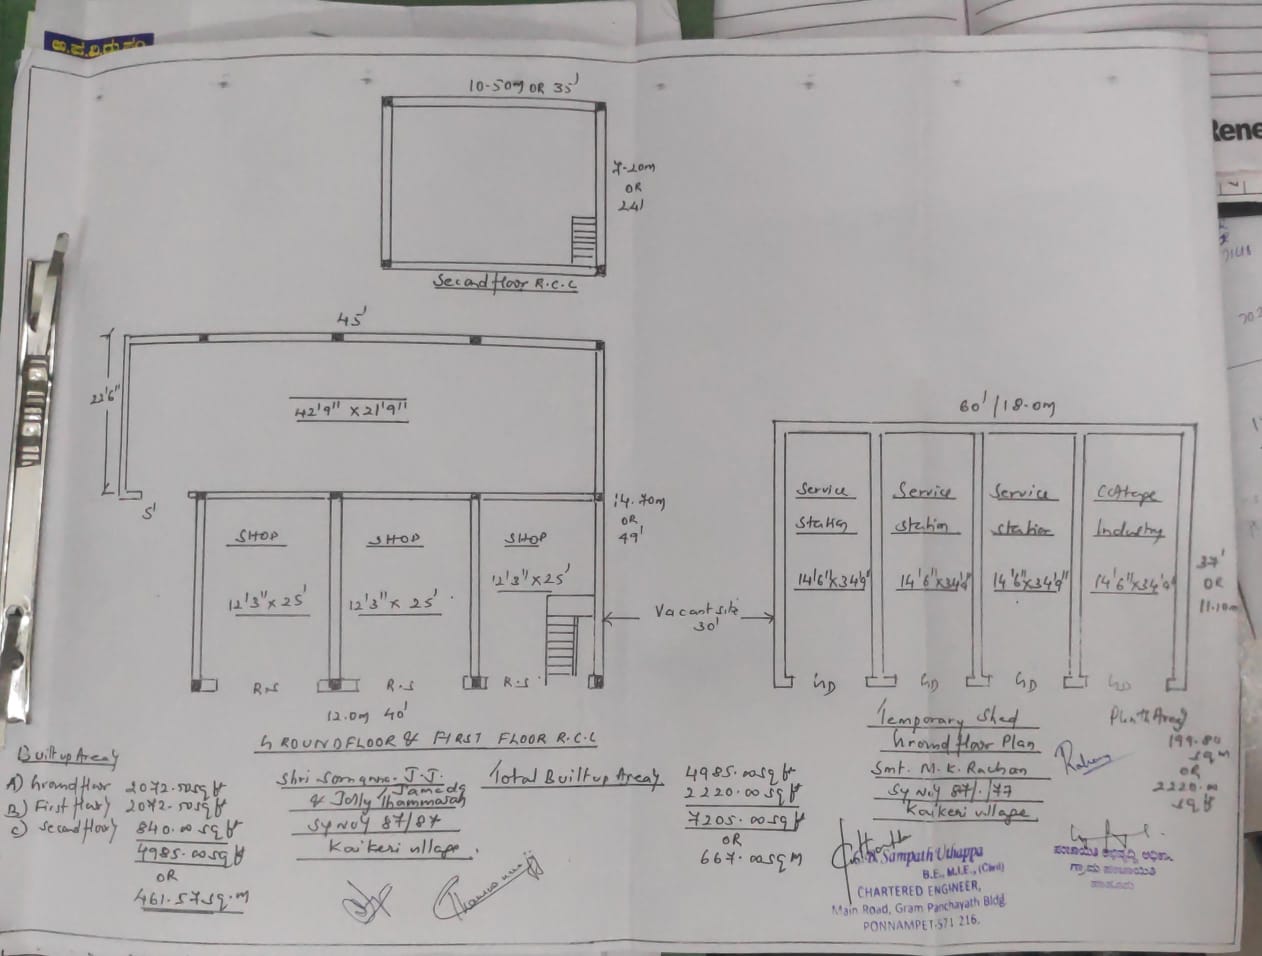 ಅ.ಪ.ವಿ.ರು.ಸಂ
Rene
10-50m OR 35'
7-20m
OR
24'
Second floor R.C.C
45'
22'6"
42'9" x 21'9"
5'
14.70m
OR
49'
SHOP
12'3" x 25'
SHOP
12'3" x 25'
SHOP
12'3" x 25'
R.S
R.S
R.S
12.0m 40'
GROUND FLOOR & FIRST FLOOR R.C.C
Vacant site
30'
60' / 18.0m
Service
Station
14'6" x 34'9"
Service
Station
14'6" x 34'9"
Service
Station
14'6" x 34'9"
Cottage
Industry
14'6" x 34'9"
37'
OR
11.10m
GD
GD
GD
GD
Temporary Shed
Ground floor Plan
Smt. M.K. Rachan
Sy No 87/177
Kaikeri village
Plinth Area
199.80
sq m
OR
2220.00
sq ft
Built up Area
A) Ground floor 2072.50 sq ft
B) First floor 2072.50 sq ft
C) Second floor 840.00 sq ft
4985.00 sq ft
OR
461.57 sq.m
Shri Somanna. J.J.
& Jolly Thammaiah
Sy No 87/87
Kaikeri village.
Total Built up Area
4985.00 sq ft
2220.00 sq ft
7205.00 sq ft
OR
667.00 sq m
Sampath Uthappa
B.E., M.I.E., (Civil)
CHARTERED ENGINEER,
Main Road, Gram Panchayath Bldg
PONNAMPET-571 216.
ಪಂಚಾಯಿತಿ ಅಭಿವೃದ್ಧಿ ಅಧಿಕಾರಿ
ಗ್ರಾಮ ಪಂಚಾಯಿತಿ